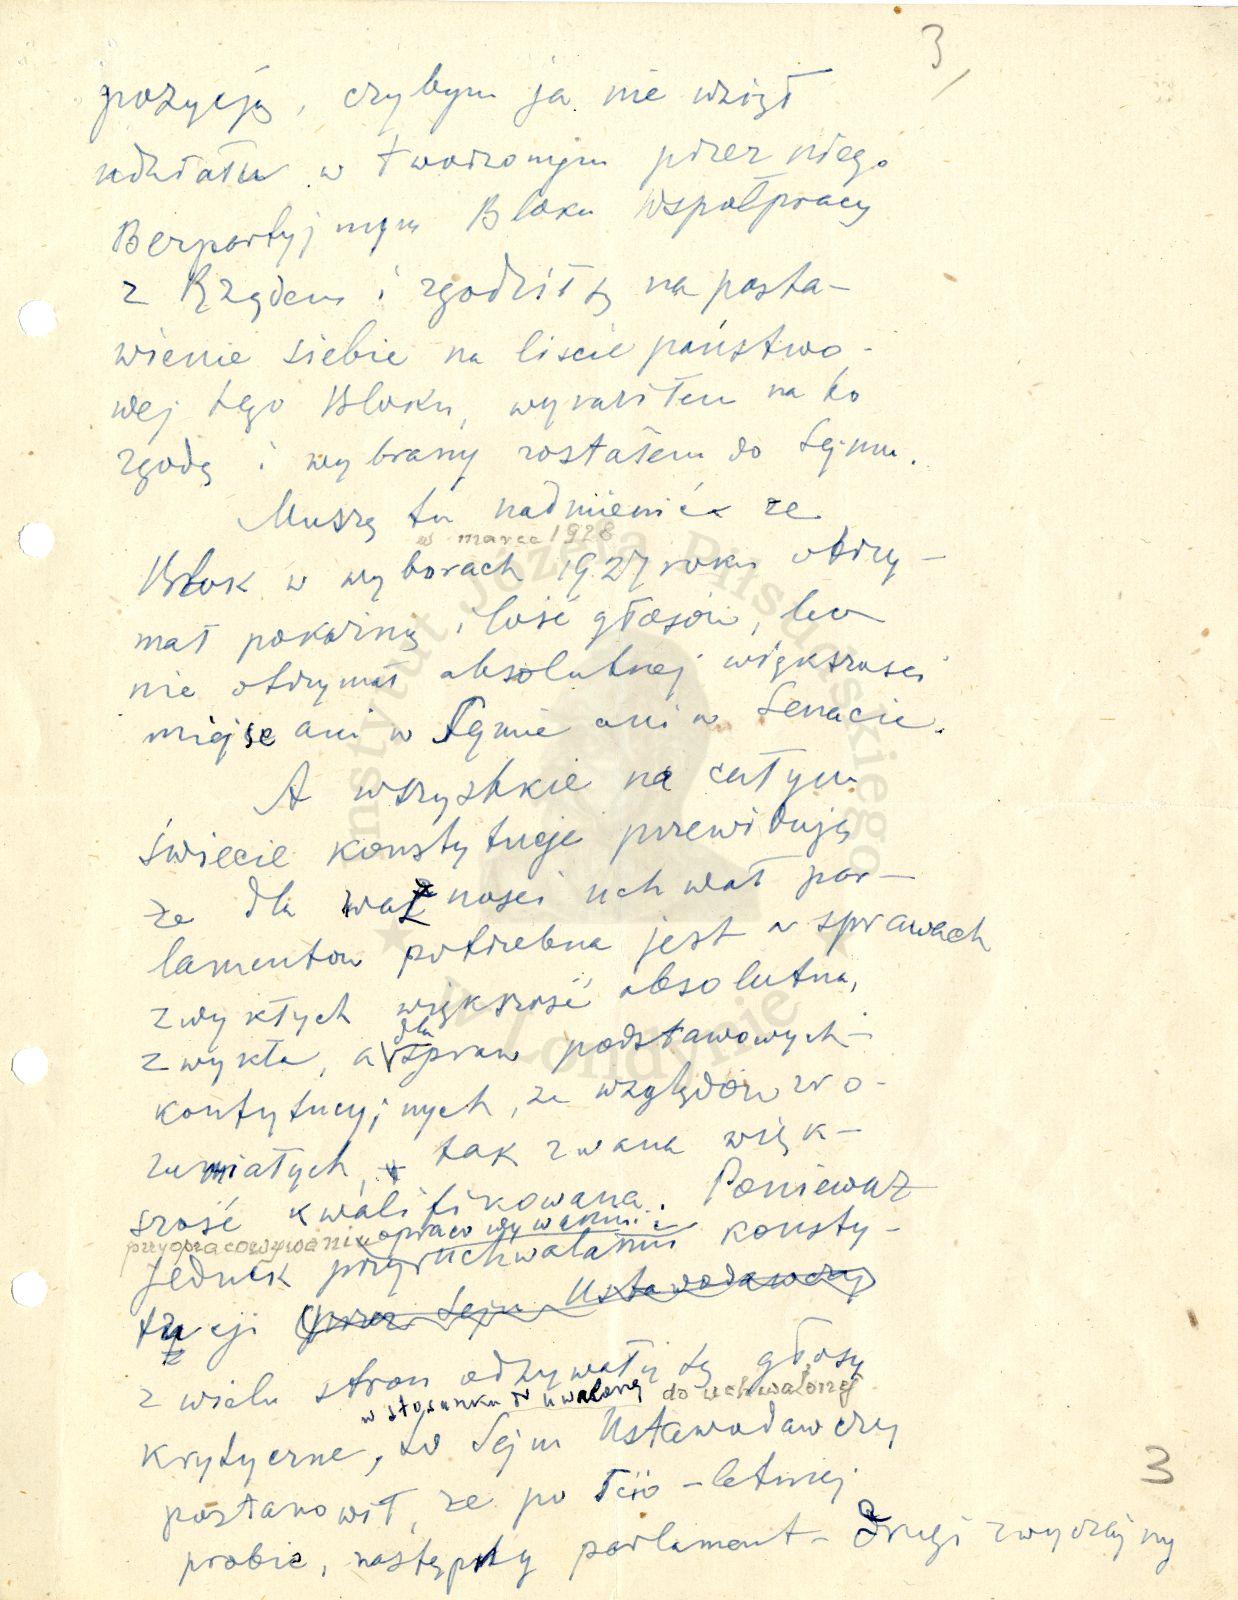 3,
pozycją, czybym ja nie wziął
udziału w tworzonym przez niego
Bezpartyjnym Bloku Współpracy
z Rządem i zgodził się na posta-
wienie siebie na liscie państwo-
wej tego Bloku, wyraziłem na to
zgodę i wybrany zostałem do Sejmu.
Muszę tu nadmienić ze
w marcu 1928
Blok w wyborach 1927 roku otrzy-
mał pokaźną ilość głosów, lecz
nie otrzymał absolutnej większosci
miejsc ani w Sejmie ani w Senacie.
A wszystkie na całym
świecie konstytucje przewidują
ze dla ważnosci uchwał par-
lamentow potrzebna jest w sprawach
zwykłych większość absolutna,
zwykła, a dla spraw podstawowych-
kontytucyjnych, ze względów zro-
zumiałych, tak zwana więk-
szość kwalifikowana. Ponieważ
przy opracowywaniu opracowywaniu i
jednak przy uchwalaniu konsty-
tucji (przez Sejm Ustawodawczy)
z wielu stron odzywały się głosy
w stosunku do uchwalonej
krytyczne, to Sejm Ustawodawczy
postanowił, ze po -letniej
probie, następny parlament - drugi zwyczajny
3
Instytut Józefa Piłsudskiego
w Londynie